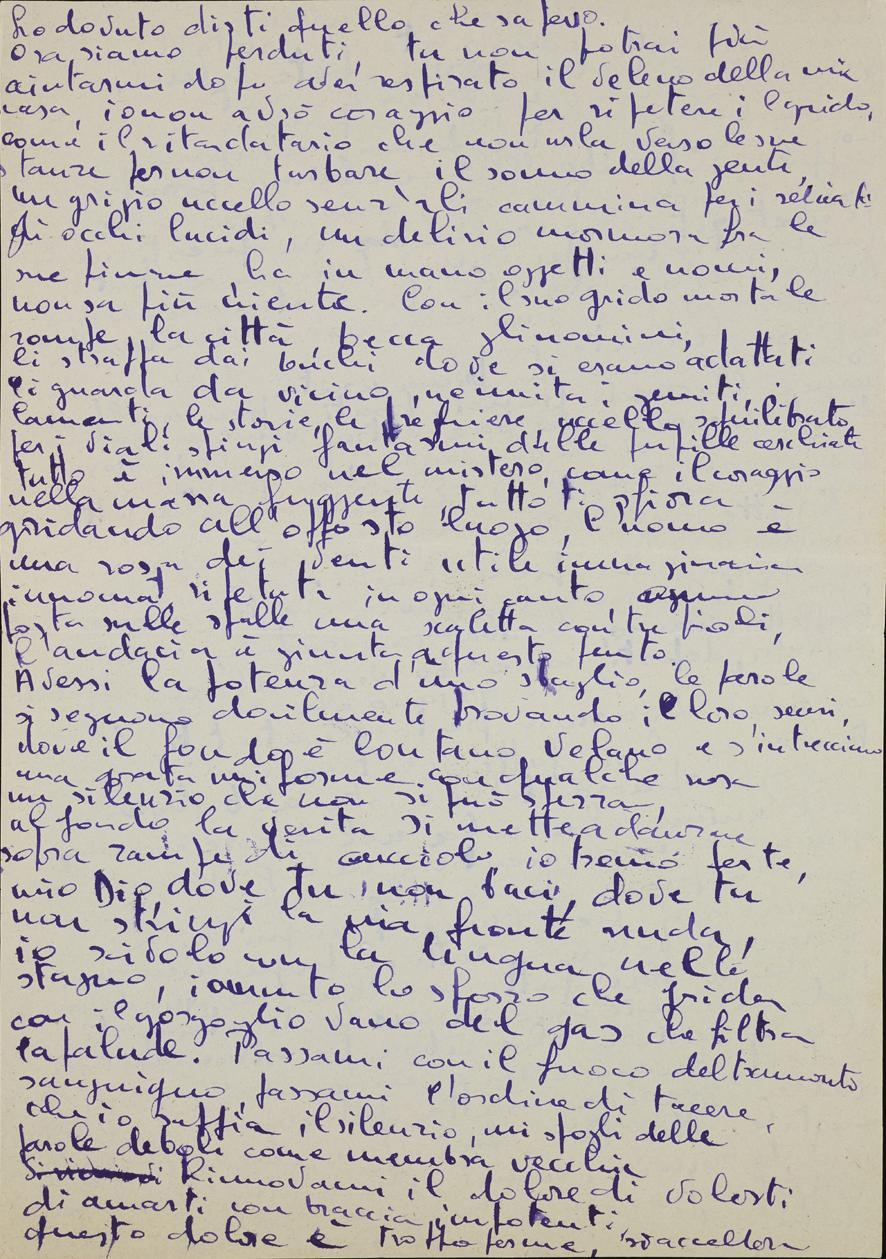 ho dovuto dirti quello che sapevo.
Ora siamo perduti, tu non potrai più
aiutarmi dopo aver respirato il veleno della mia
casa, io non avrò coraggio per ripetere i
come il ritardatario che non urla verso le sue
stanze per non turbare il sonno della gente,
un grigio uccello senz'ali cammina per i selciati
di occhi lucidi, un delirio mormora fra le
sue piume ha in mano oggetti e nomi,
non sa più niente. Con il suo grido mortale
rompe la città, becca gli uomini,
li strappa dai buchi dove si erano adattati
li guarda da vicino, ne imita i gemiti, i
lamenti, le storie, le preghiere, uccello squilibrato
per i viali spingi fantasmi dalle pupille cerchiate
tutto è immerso nel mistero, come il coraggio
nella massa fuggente, tutto ti sfiora
gridando all'opposto luogo, l'uomo è
una rosa dei venti utile immaginaria
ripetuta in ogni canto,
porta sulle spalle una scaletta con tre pioli,
l'audacia è giunta a questo punto.
Avessi la potenza d'uno sbaglio, le parole
si seguono docilmente trovando il loro sensi,
dove il fondo è lontano velano e s'intrecciano
una grata uniforme con qualche rosa
un silenzio che non si può sferrare,
al fondo la verità si mette a danzare
sopra rampe di io tremo per te,
mio Dio, dove tu non baci, dove tu
non stringi la mia fronte nuda,
io scivolo con la lingua nello
stagno, io tento lo sforzo che grida
con il gorgoglio vano del gas che filtra
la palude. Passami con il fuoco del tramonto
sanguigno, passami l'ordine di tacere,
che io sappia il silenzio, mi spogli delle
parole deboli come membra vecchie
Rinnovami il dolore di volerti
di amarti con braccia impotenti
questo dolore è troppo fermo,